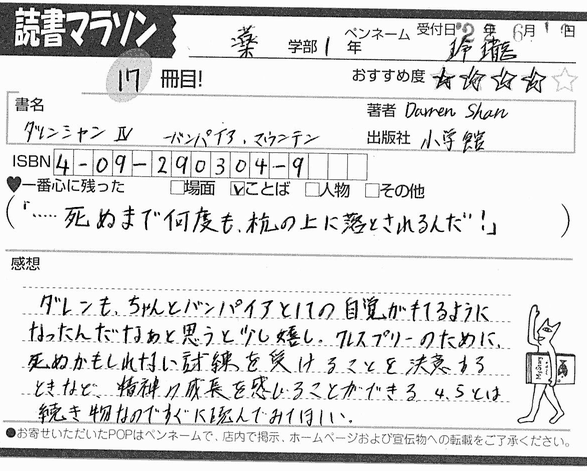 読書マラソン
薬 学部1年 ペンネーム 玲瓏 受付日 2年6月1日
17冊目! おすすめ度 ★★★★☆
書名 著者 Darren Shan
ダレンシャン Ⅳ ーバンパイア・マウンテン 出版社 小学館
ISBN 4-09-290304-9
♥一番心に残った □場面 ☑ことば □人物 □その他
(「……死ぬまで何度も、杭の上に落とされるんだ!」)
感想
ダレンも、ちゃんとバンパイアとしての自覚がもてるように
なったんだなぁと思うと少し嬉し。クレスプリーのために、
死ぬかもしれない試練を受けることを決意する
ときなど、精神の成長を感じることができる 4、5とは
続き物なのですぐに読んでみてほしい。
●お寄せいただいたPOPはペンネームで、店内で掲示、ホームページおよび宣伝物への転載をご了承ください。